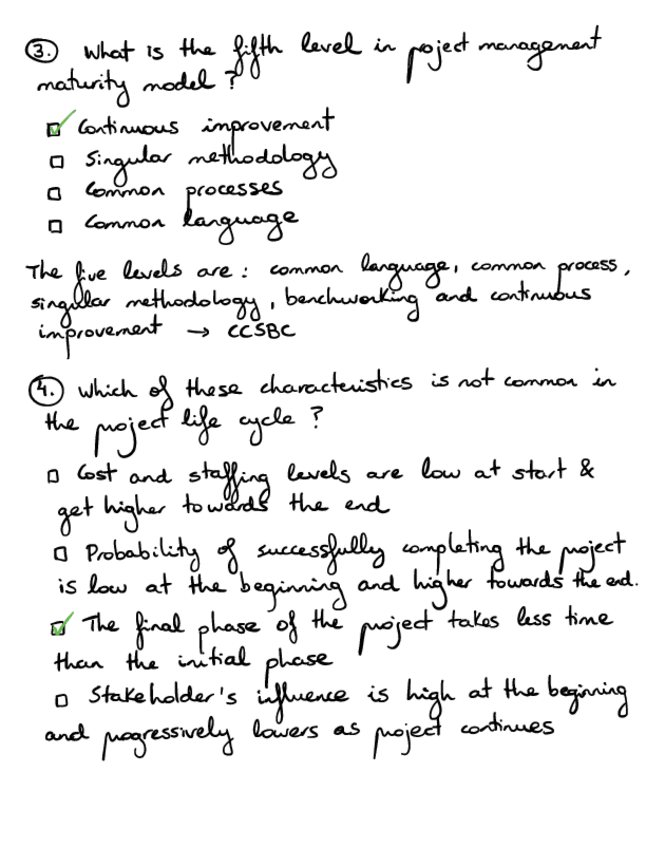 3. What is the fifth level in poject management
maturity model ?
Continuous improvement
Singular methodology
Common processes
Common language
The five levels are : common language, common process,
singular methodology, benchworking and continuous
improvement → CCSBC
4. Which of these characteristics is not common in
the project life cycle ?
Cost and staffing levels are low at start &
get higher towards the end
Probability of successfully completing the project
is low at the beginning and higher towards the end.
The final phase of the project takes less time
than the initial phase
Stakeholder's influence is high at the beginning
and progressively lowers as project continues